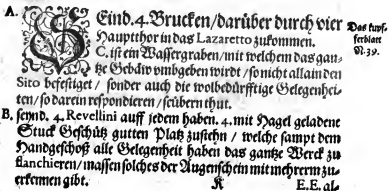 A. SEind. 4. Brucken / darüber durch vier
Hauptthor in das Lazaretto zukommen.
Das kupf-
ferblat
N. 39.
C. ist ein Wassergraben / mit welchem das gan-
tze Gebäw vmbgeben wirdt / so nicht allain den
Sito befestiget / sonder auch die wolbedürfftige Gelegenhei-
ten / so darein respondieren / seübern thut.
B. seynd. 4. Revellini auff jedem haben. 4. mit Hagel geladene
Stuck Geschütz gutten Platz zustehn / welche sampt dem
Handgeschoß alle Gelegenheit haben das gantze Werck zu
flanchieren / massen solches der Augenschein mit mehrerm zu-
erkennen gibt.
K E.E. al-